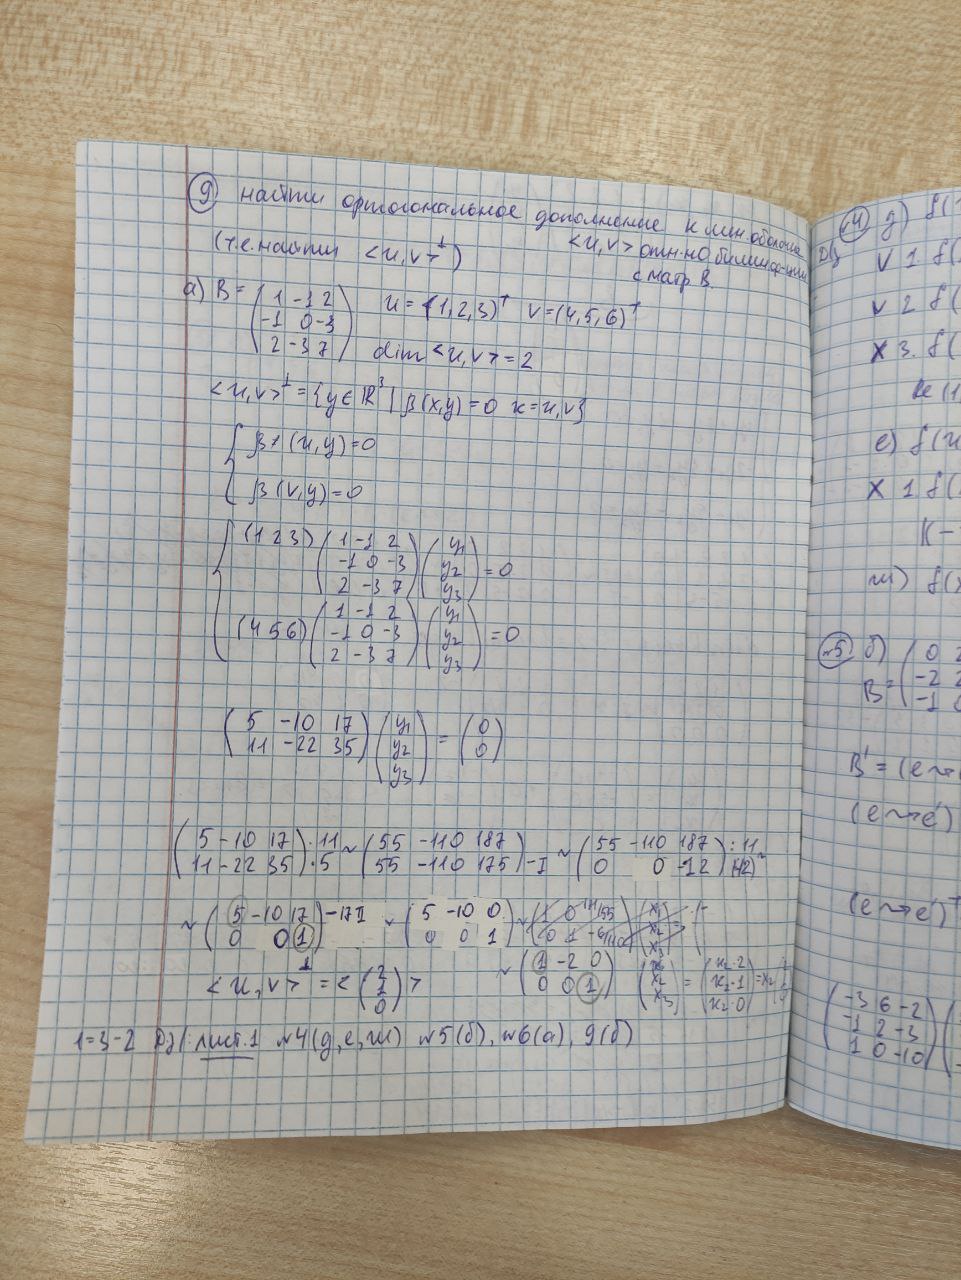 9 найти ортогональное дополнение к лин. оболочке
(т.е. найти <u,v>⊥) <u,v> отн-но билин ф-ции
с матр B.
а) B = (1 -1 2
-1 0 -3
2 -3 7) u = (1,2,3)ᵀ v = (4,5,6)ᵀ
dim <u,v> = 2
<u,v>⊥ = {y ∈ ℝ³ | β(x,y)=0 x=u,v}
{ β(u,y)=0
β(v,y)=0
{ (1 2 3) (1 -1 2
-1 0 -3
2 -3 7) (y₁
y₂
y₃) = 0
(4 5 6) (1 -1 2
-1 0 -3
2 -3 7) (y₁
y₂
y₃) = 0
(5 -10 17
11 -22 35) (y₁
y₂
y₃) = (0
0)
(5 -10 17
11 -22 35) ·11
·5 ~ (55 -110 187
55 -110 175) -I ~ (55 -110 187
0 0 -12) :11
:(-12) ~
~ (5 -10 17
0 0 1) -17II ~ (5 -10 0
0 0 1) ~
~ (1 -2 0
0 0 1) (x₁
x₂
x₃) = (x₂·2
x₂·1
x₂·0) = x₂
<u,v>⊥ = <(2
1
0)>
1=3-2 Дз: лист.1 №4(д,е,ж) №5(б), №6(а), 9(б)
№4 д) f(
Дз
v 1 f(
v 2 f(
x 3. f(
е) f(
x 1 f(
ж) f(
№5 б)
B = (0 2
-2 2
-1 0
B' = (e⇝e
(e⇝e')
(e⇝e')ᵀ
(-3 6 -2
-1 2 -3
1 0 -10)